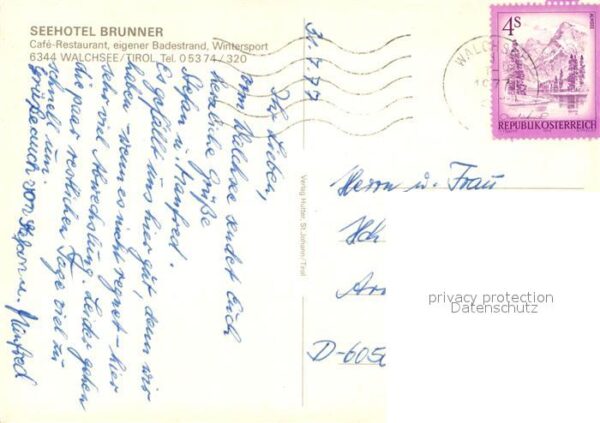 SEEHOTEL BRUNNER
Café-Restaurant, eigener Badestrand, Wintersport
6344 WALCHSEE/TIROL, Tel. 0 53 74 / 320
31.7.77
Ihr Lieben,
vom Walchsee sendet Euch
herzliche Grüße
Stefan u. Manfred.
Es gefällt uns hier gut, denn wir
haben - wenn es nicht regnet - hier
sehr viel Abwechslung. Leider gehen
die paar restlichen Tage viel zu
schnell um.
Grüße auch von Stefan u. Manfred
Verlag Hutter, St. Johann/Tirol
WALCHSEE
1977
4S
ALMSEE
REPUBLIK ÖSTERREICH
Herrn u. Frau
D-605
privacy protection
Datenschutz